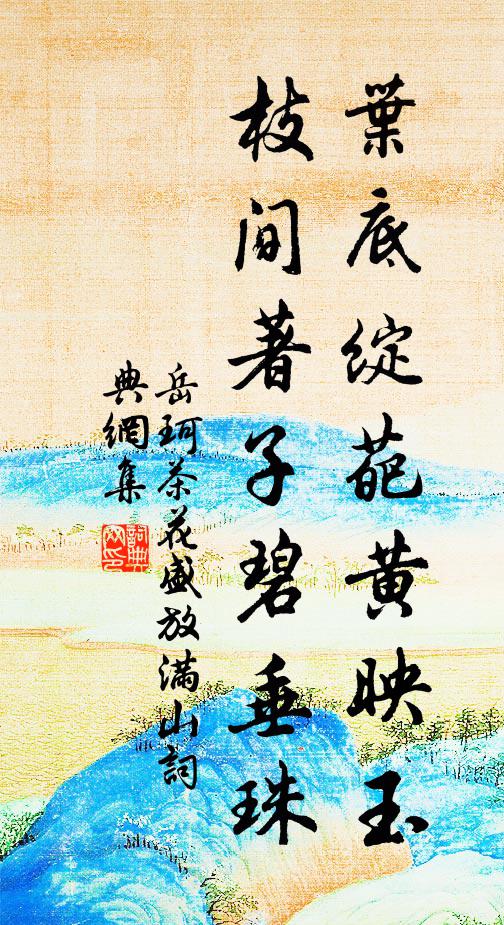 葉底綻葩黃映玉
枝間著子碧垂珠
岳珂茶花盛放滿山詞
典網集